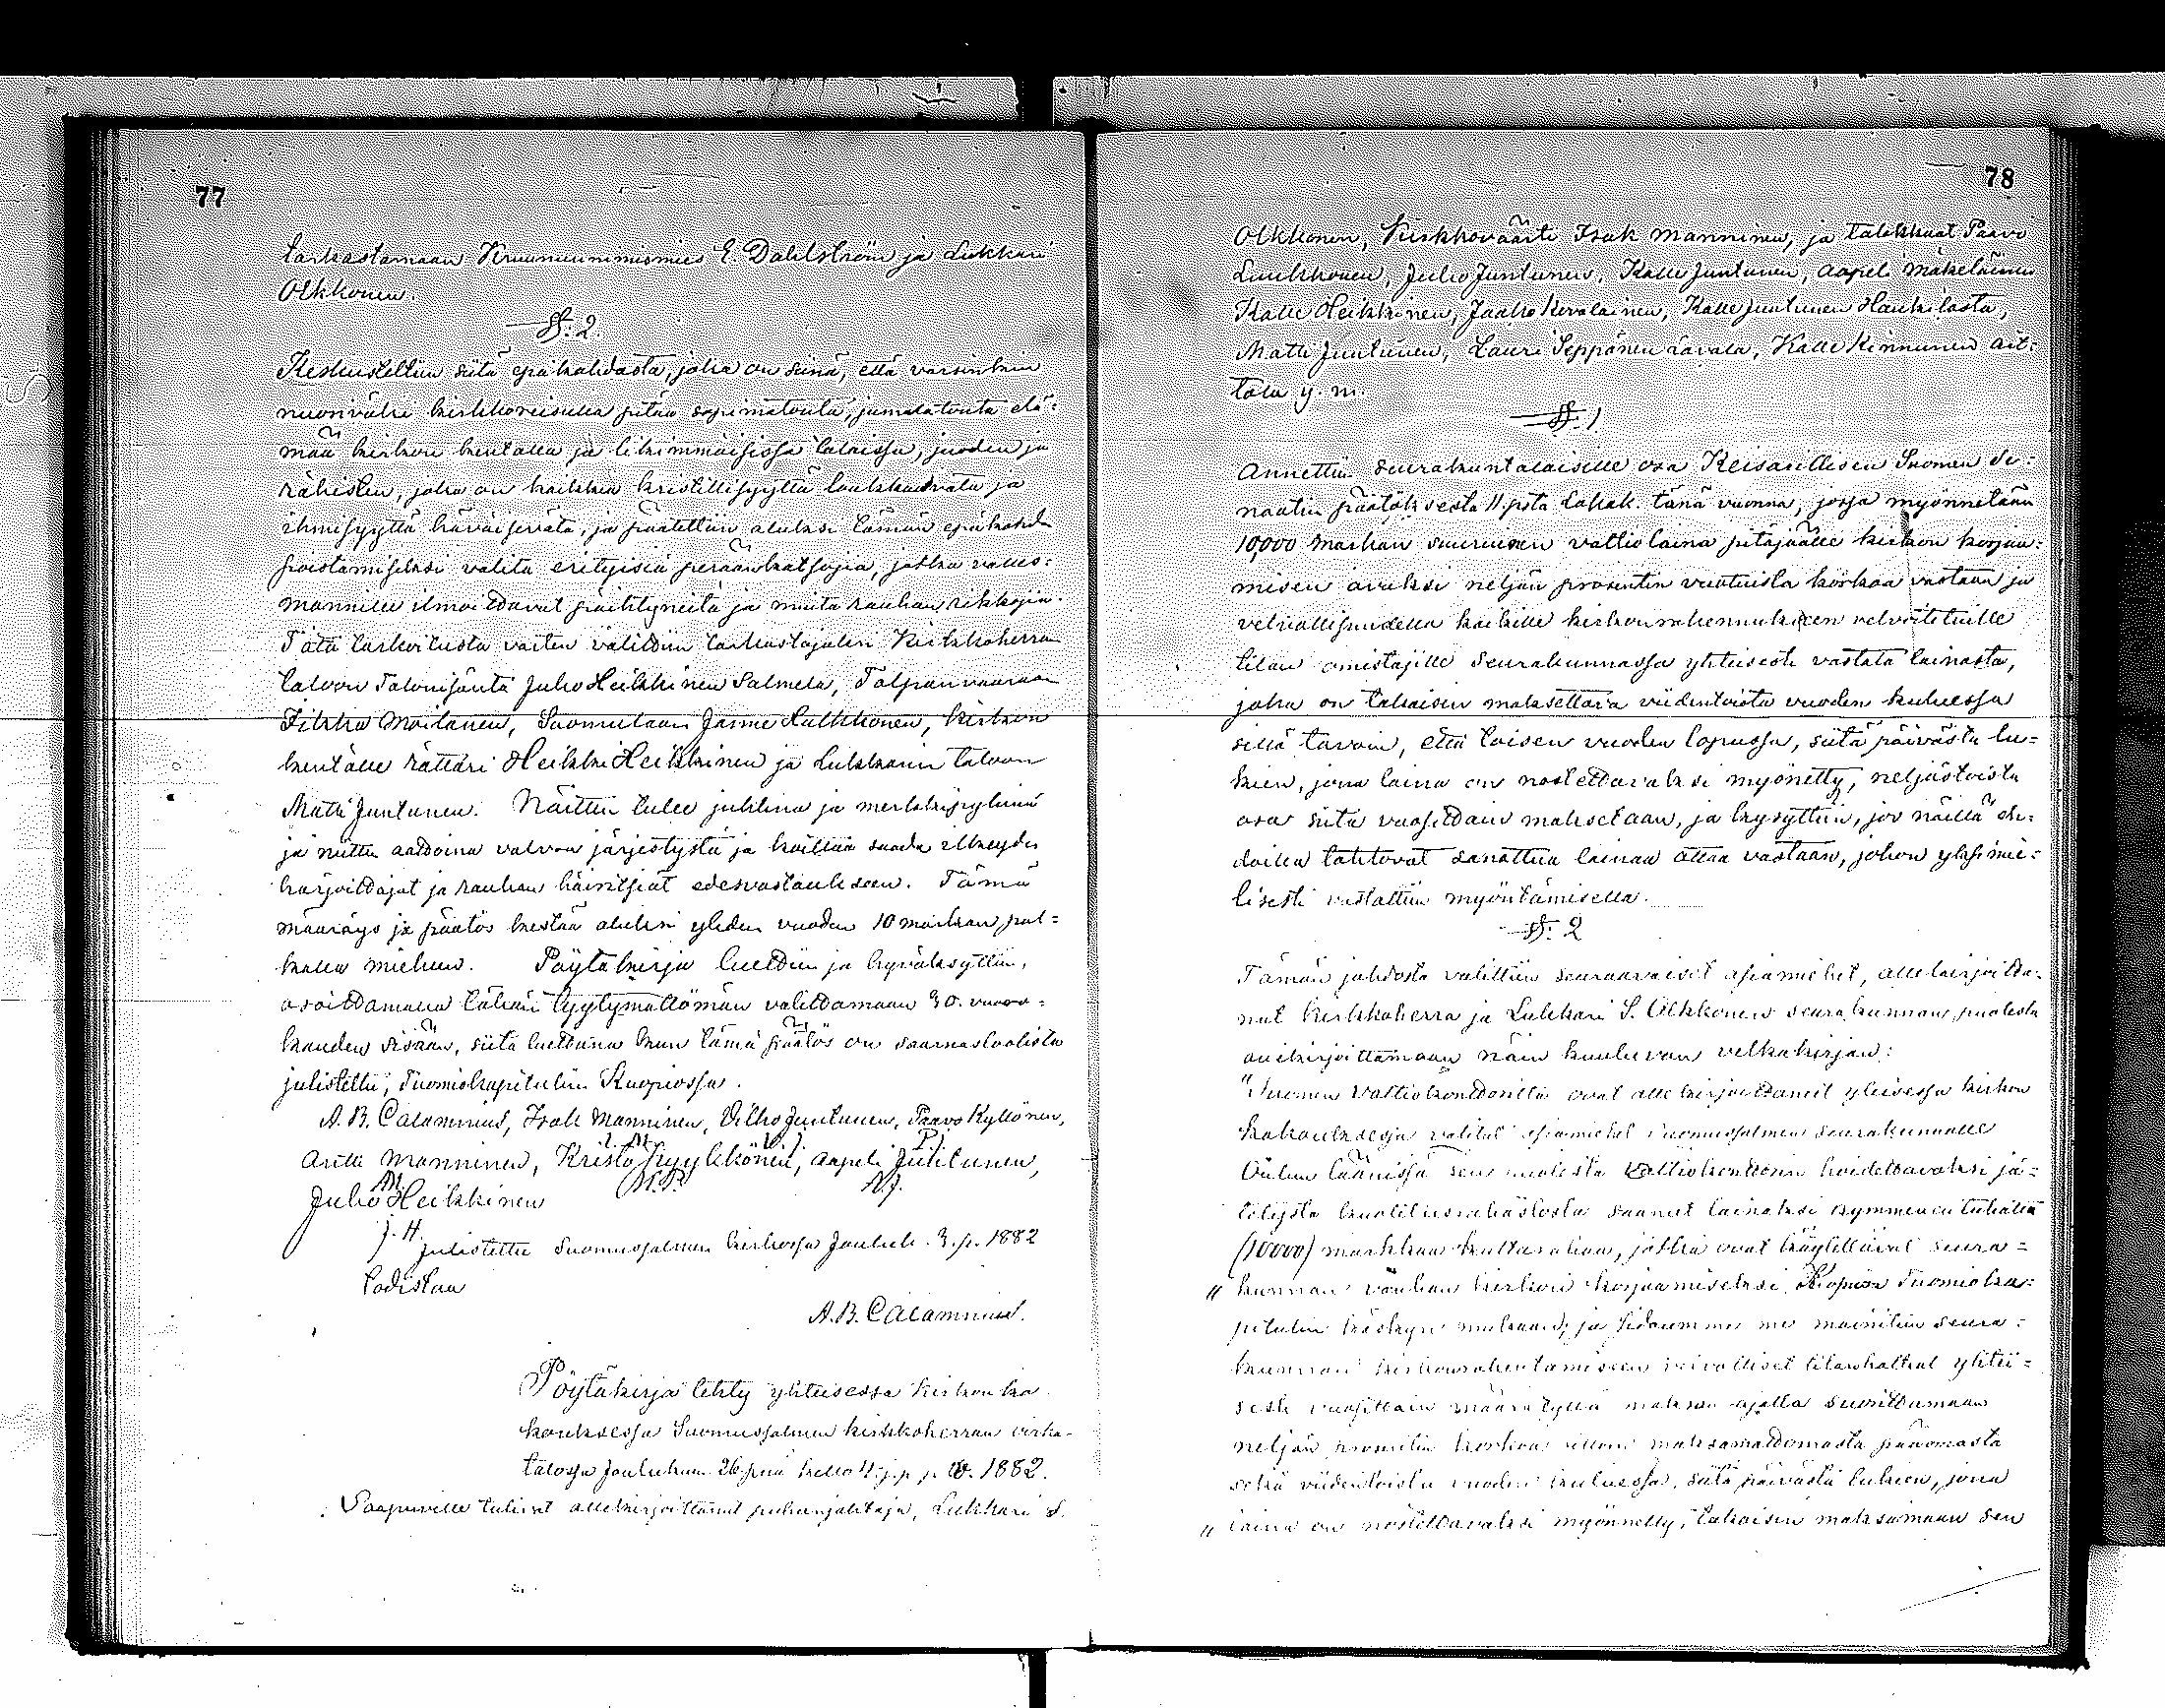 77
tarkastamaan Kruununnimismies E. Dahlström ja Lukkari
Olkkonen.
§. 2.
Keskusteltiin siitä epäkohdasta, joka on siinä, että varsinkin
nuoriväki kirkkoreisulla pitää sopimatonta, jumalatonta elä-
mää kirkon kentällä ja likimmäisissä taloissa, juoden ja
rähisten, joka on kaikkea kristillisyyttä loukkaavata ja
ihmisyyttä häväisevätä, ja päätettiin aluksi tämän epäkohdan
poistamiseksi valita erityisiä peräänkatsojia, jotka valles-
mannille ilmoittavat päihtyneitä ja muita rauhan rikkojia.
Tätä tarkoitusta varten valittiin tarkastajaksi Kirkkoherran
taloon Talonisäntä Juho Heikkinen Salmela, Talpanvaaraan
Moilanen, Janne Kirkon
kentälle Rättäri Heikki Heikkinen ja Lukkarin taloon
Matti Juntunen. Näitten tulee juhlina ja merkkipyhinä
ja niitten aattoina valvoa järjestystä ja koittaa saada ilkeyden
harjoittajat ja rauhan häiritsiät edesvastaukseen. Tämä
määräys ja päätös kestää aluksi yhden vuoden 10 markan pal-
kalla mieheen. Pöytäkirja luettiin ja hyväksyttiin,
osoittamalla tähän tyytymättömän valittamaan 30. vuoro-
kauden sisään, siitä luettuna kun tämä päätös on saarnastuolista
julistettu, Tuomiokapituliin Kuopiossa.
A. B. Calamnius, Isak Manninen, Vilho Juntunen, Paavo Kyllönen,
Antti Manninen, Kristo Pyykkönen, Aapeli Juntunen,
Juho Heikkinen
J. H.
Julistettu Suomussalmen kirkossa Jouluk. 3. p. 1882
todistaa
A. B. Calamnius.
Pöytäkirja tehty yhteisessä kirkonko-
kouksessa Suomussalmen kirkkoherran virka-
talossa Joulukuun 26 pnä kello 4 j. p. p. 1882.
Saapuville tulivat allekirjoittanut puheenjohtaja, Lukkari S.
78
Olkkonen, Kirkkoväärti Isak Manninen, ja talokkaat Paavo
Luukkonen, Juho Juntunen, Kalle Juntunen, Aapeli Mäkeläinen
Kalle Heikkinen, Jaakko Kovalainen, Kalle Juntunen Haukilasta,
Matti Juntunen, Lauri Seppänen Kalle Kinnunen Ait-
tola y. m.
§. 1
Annettiin seurakuntalaisille osa Keisarillisen Suomen Se-
naatin päätöksestä 11 pstä Lokak. tänä vuonna, jossa myönnetään
10,000 markan suuruinen valtiolaina pitäjäälle kirkon korjaa-
misen avuksi neljän prosentin vuotuista korkoa vastaan ja
velvollisuudella kaikille kirkonrakennukseen velvoitetuille
tilan omistajille seurakunnassa yhteisesti vastata lainasta,
joka on takaisin maksettava viidentoista vuoden kuluessa
sillä tavoin, että toisen vuoden lopussa, siitä päivästä lu-
kien, jona laina on nostettavaksi myönetty, neljästoista
osa siitä vuosittain maksetaan, ja kysyttiin, jos näillä eh-
doilla tahtovat sanottua lainaa ottaa vastaan, johon yksimie-
lisesti vastattiin myöntämisellä.
§. 2
Tämän johdosta valittiin seuraavaiset asiamiehet, allekirjoitta-
nut kirkkoherra ja Lukkari S. Olkkonen seurakunnan puolesta
allekirjoittamaan näin kuuluvan velkakirjan:
"Suomen Valtiokonttorilta ovat allekirjoittaneet yleisessä kirkon
kokouksessa valitut asiamiehet Suomussalmen seurakunnalle
Oulun läänissä sen puolesta Valtiokonttorin hoidettavaksi jä-
tetystä kuoletusrahastosta saaneet lainaksi kymmenentuhatta
(10000) markkaa kultarahaa, jotka ovat käytettävät seura-
" kunnan vanhan kirkon korjaamiseksi Kuopion Tuomioka-
pitulin käskyn mukaan; ja sidomme me mainitun seura-
kunnan kirkonrakentamiseen velvolliset tilanhaltiat yhtei-
sesti vuosittain määrätyllä maksu ajalla suorittamaan
neljän prosentin korkoa silloin maksamattomasta pääomasta
sekä viidentoista vuoden kuluessa, siitä päivästä lukien, jona
" laina on nostettavaksi myönnetty, takaisin maksamaan sen